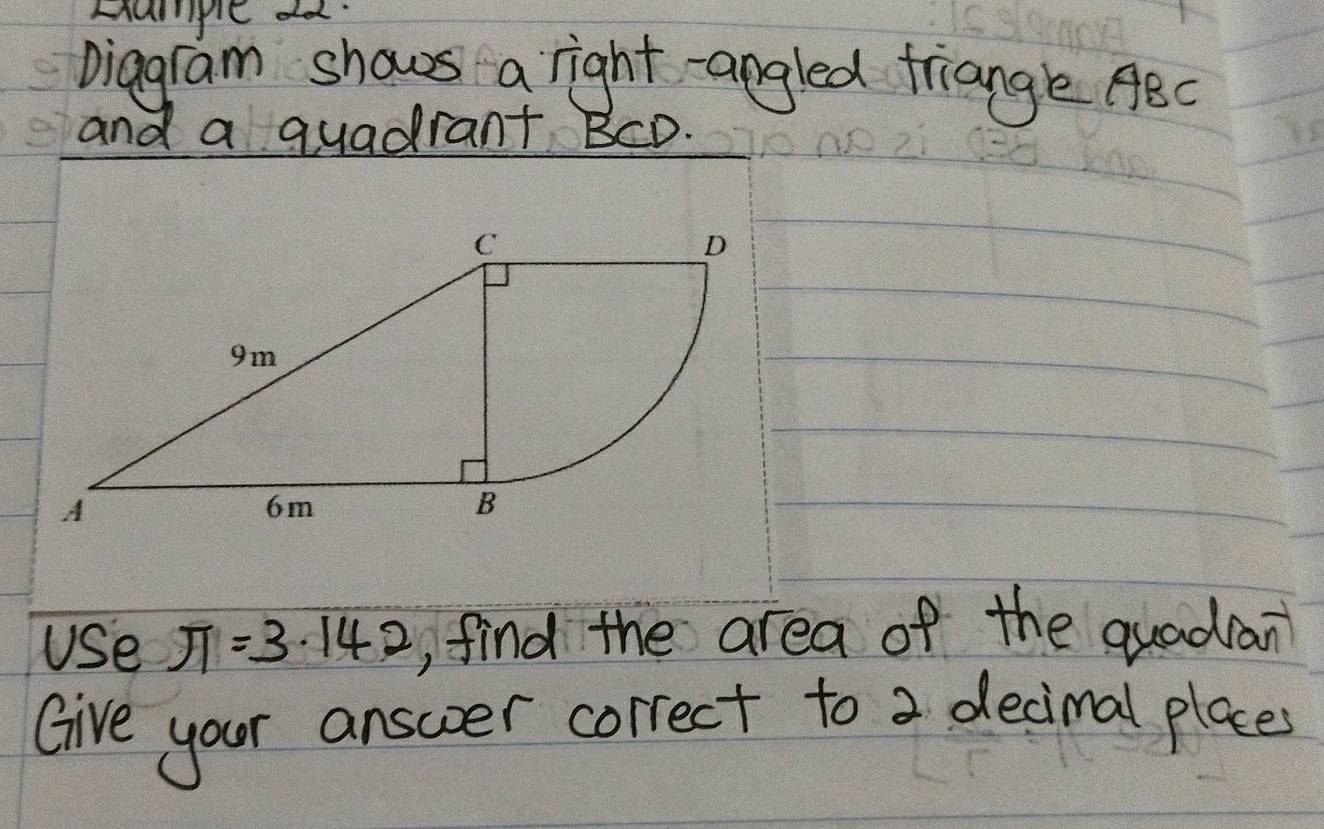 Example 22.
Diagram shows a right-angled triangle ABC
and a quadrant BCD.
C D
9m
A 6m B
Use π = 3.142, find the area of the quadrant
Give your answer correct to 2 decimal places